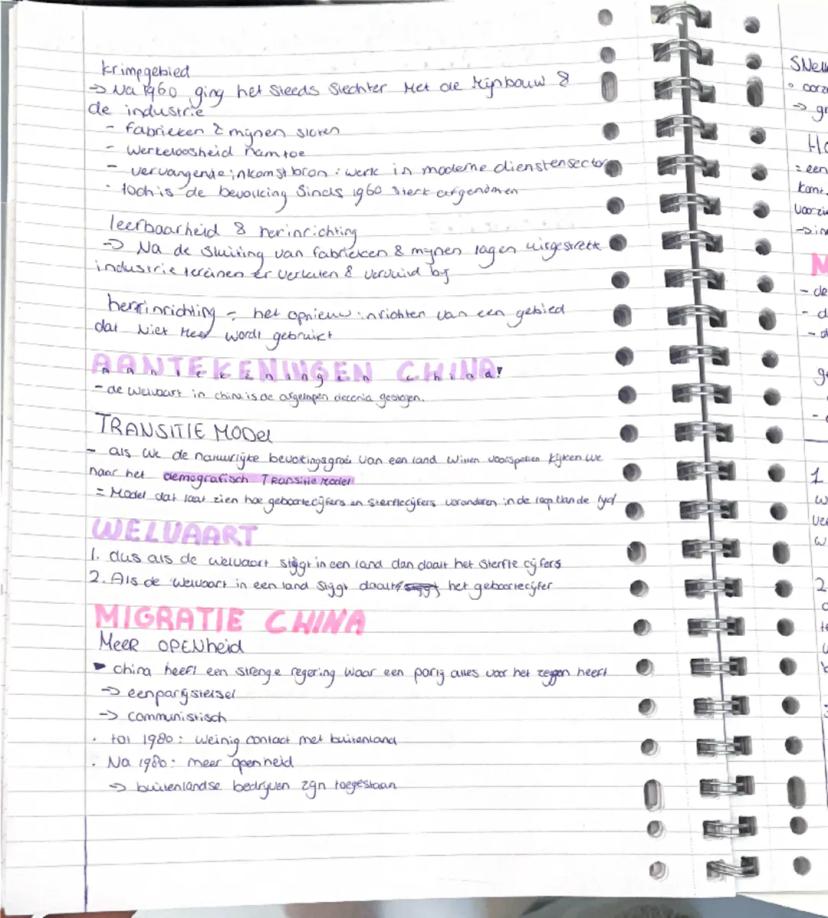 krimpgebied
-> Na 1960 ging het steeds slechter met de mijnbouw &
de industrie
- fabrieken & mijnen sloten
- werkeloosheid nam toe
- vervangende inkomstbron: werk in moderne dienstensector
· toch is de bevolking sinds 1960 sterk afgenomen
leefbaarheid & herinrichting
-> Na de sluiting van fabrieken & mijnen lagen uitgestrekte
industrie terreinen er verlaten & vervuild bij
herrinrichting = het opnieuw inrichten van een gebied
dat niet meer wordt gebruikt
AANTEKENINGEN CHINA!
- de welvaart in china is de afgelopen decenia gestegen.
TRANSITIE MODEL
- als we de natuurlijke bevolkingsgroei van een land willen voorspellen kijken we
naar het demografisch Transitie model
= Model dat laat zien hoe geboortecijfers en sterftecijfers veranderen in de loop van de tijd
WELVAART
1. dus als de welvaart stijgt in een land dan daalt het sterfte cijfers
2. Als de welvaart in een land stijgt daalt het geboortecijfer
MIGRATIE CHINA
Meer OPENheid
► China heeft een strenge regering waar een partij alles voor het zeggen heeft
-> eenpartijstelsel
-> communistisch
· tot 1980: weinig contact met buitenland
· Na 1980: meer openheid
-> buitenlandse bedrijven zijn toegestaan
SNell
-> gr
Ho
= een
komt
voorzi
-> in
M
- de
- d
- d
1
W
ver
W
2